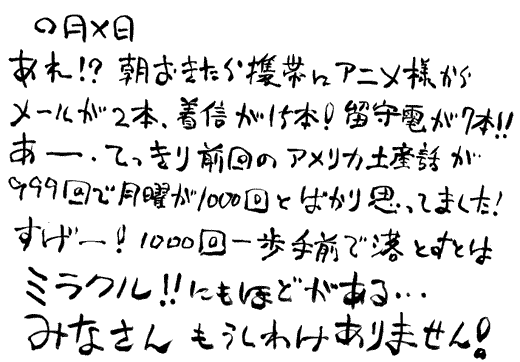 〇月×日
あれ!? 朝おきたら携帯にアニメ様から
メールが2本、着信が15本!留守電が7本!!
あー・てっきり前回のアメリカ土産話が
999回で月曜が1000回とばかり思ってました!
すげー!1000回一歩手前で落とすとは
ミラクル!!にもほどがある…
みなさん もうしわけありません!